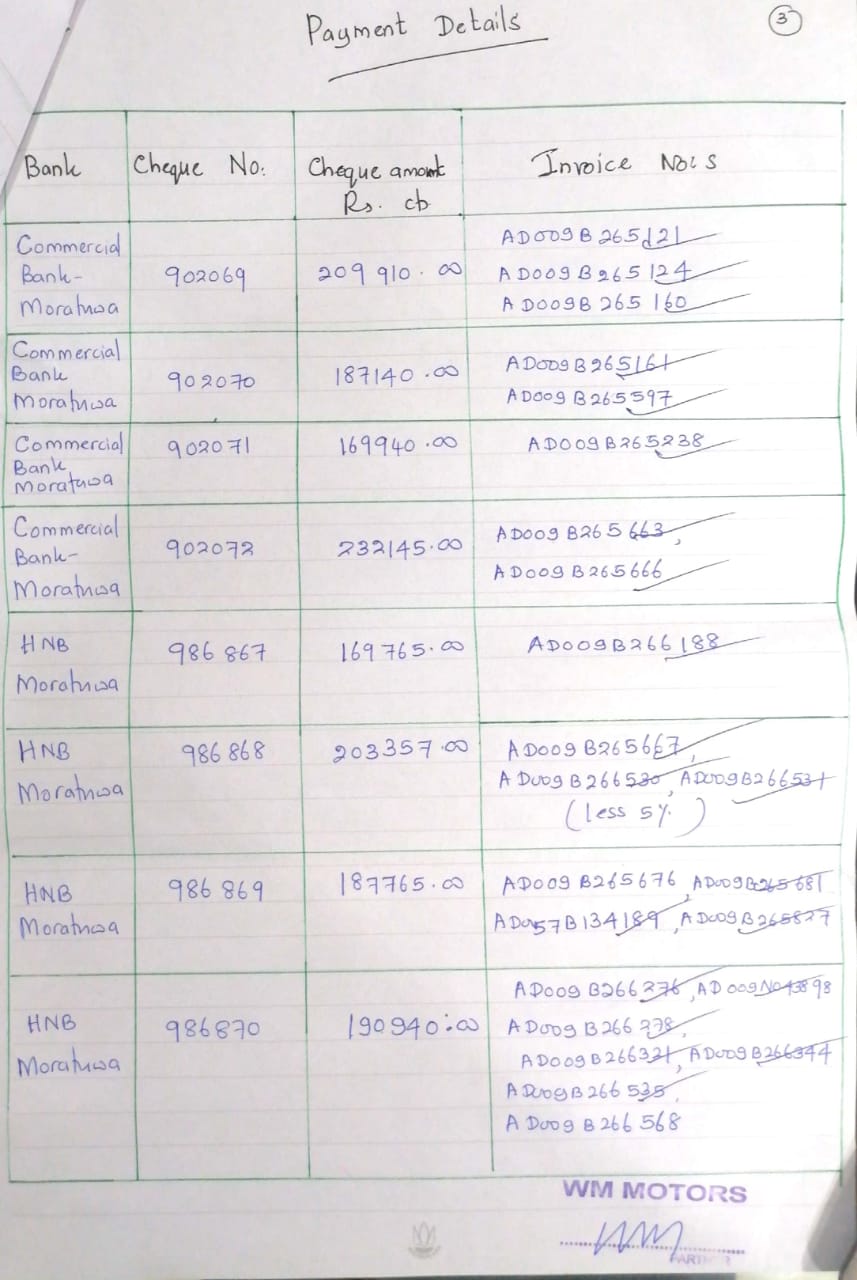 Payment Details
3
Bank Cheque No. Cheque amount Rs. cts Invoice No's
Commercial Bank - Moratuwa 902069 209 910.00 AD009B265121
AD009B265124
AD009B265160
Commercial Bank Moratuwa 902070 187140.00 AD009B265161
AD009B265597
Commercial Bank Moratuwa 902071 169940.00 AD009B265238
Commercial Bank - Moratuwa 902072 232145.00 AD009B265663,
AD009B265666
HNB Moratuwa 986 867 169765.00 AD009B266188
HNB Moratuwa 986 868 203357.00 AD009B265667,
AD009B266530, AD009B266531
(less 5%)
HNB Moratuwa 986 869 187765.00 AD009B265676, AD009B265681
AD057B134189, AD009B265827
HNB Moratuwa 986870 190940.00 AD009B266276, AD009N043898
AD009B266278,
AD009B266321, AD009B266344
AD009B266535,
AD009B266568
WM MOTORS
PARTNER